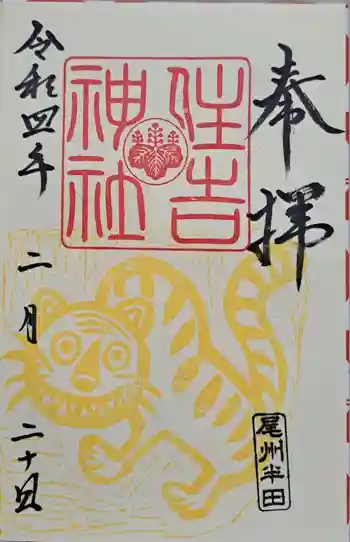 奉拝
住吉
神社
令和四年
二月
二十日
尾州半田